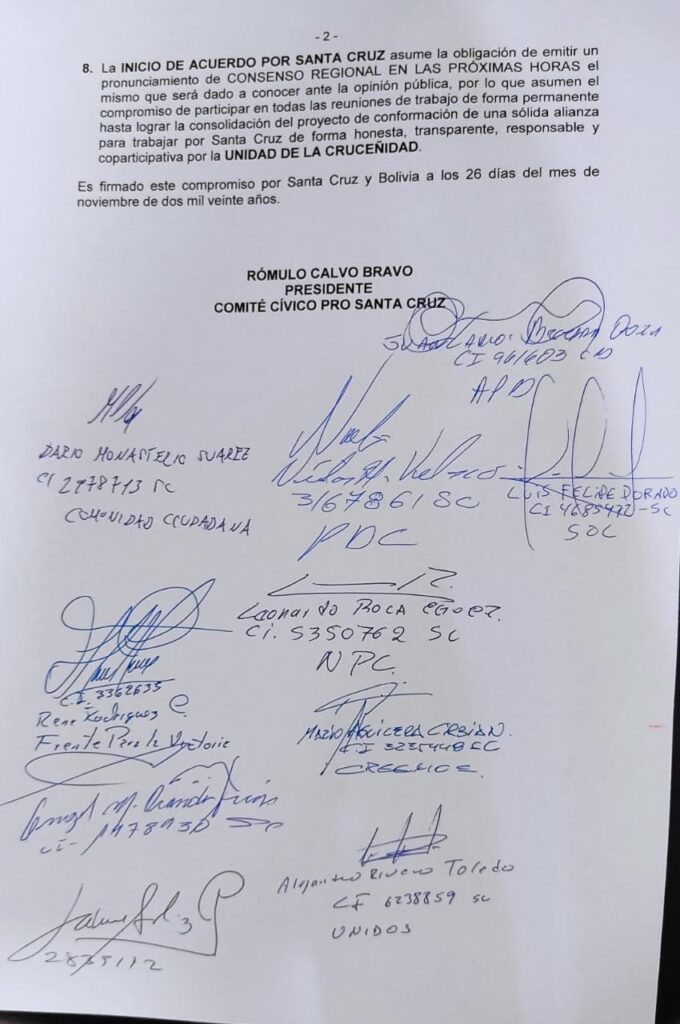 - 2 -
8. La INICIO DE ACUERDO POR SANTA CRUZ asume la obligación de emitir un
pronunciamiento de CONSENSO REGIONAL EN LAS PRÓXIMAS HORAS el
mismo que será dado a conocer ante la opinión pública, por lo que asumen el
compromiso de participar en todas las reuniones de trabajo de forma permanente
hasta lograr la consolidación del proyecto de conformación de una sólida alianza
para trabajar por Santa Cruz de forma honesta, transparente, responsable y
coparticipativa por la UNIDAD DE LA CRUCEÑIDAD.
Es firmado este compromiso por Santa Cruz y Bolivia a los 26 días del mes de
noviembre de dos mil veinte años.
RÓMULO CALVO BRAVO
PRESIDENTE
COMITÉ CÍVICO PRO SANTA CRUZ
CI
DARIO MONASTERIO SUAREZ
CI 2778713 SC
COMUNIDAD CIUDADANA
Velasco
3167861 SC
PDC
LUIS FELIPE DORADO
CI 4685472-SC
SOL
Leonardo Roca
CI. 5350762 SC
NPC
C.I. 3362635
Rene Rodriguez C.
Frente Para la Victoria
MARIO AGUILERA
CI 3235448 SC
CREEMOS.
Angel M.
CI- 1978930 SC
Alejandro Rivero Toledo
CI 6238859 SC
UNIDOS